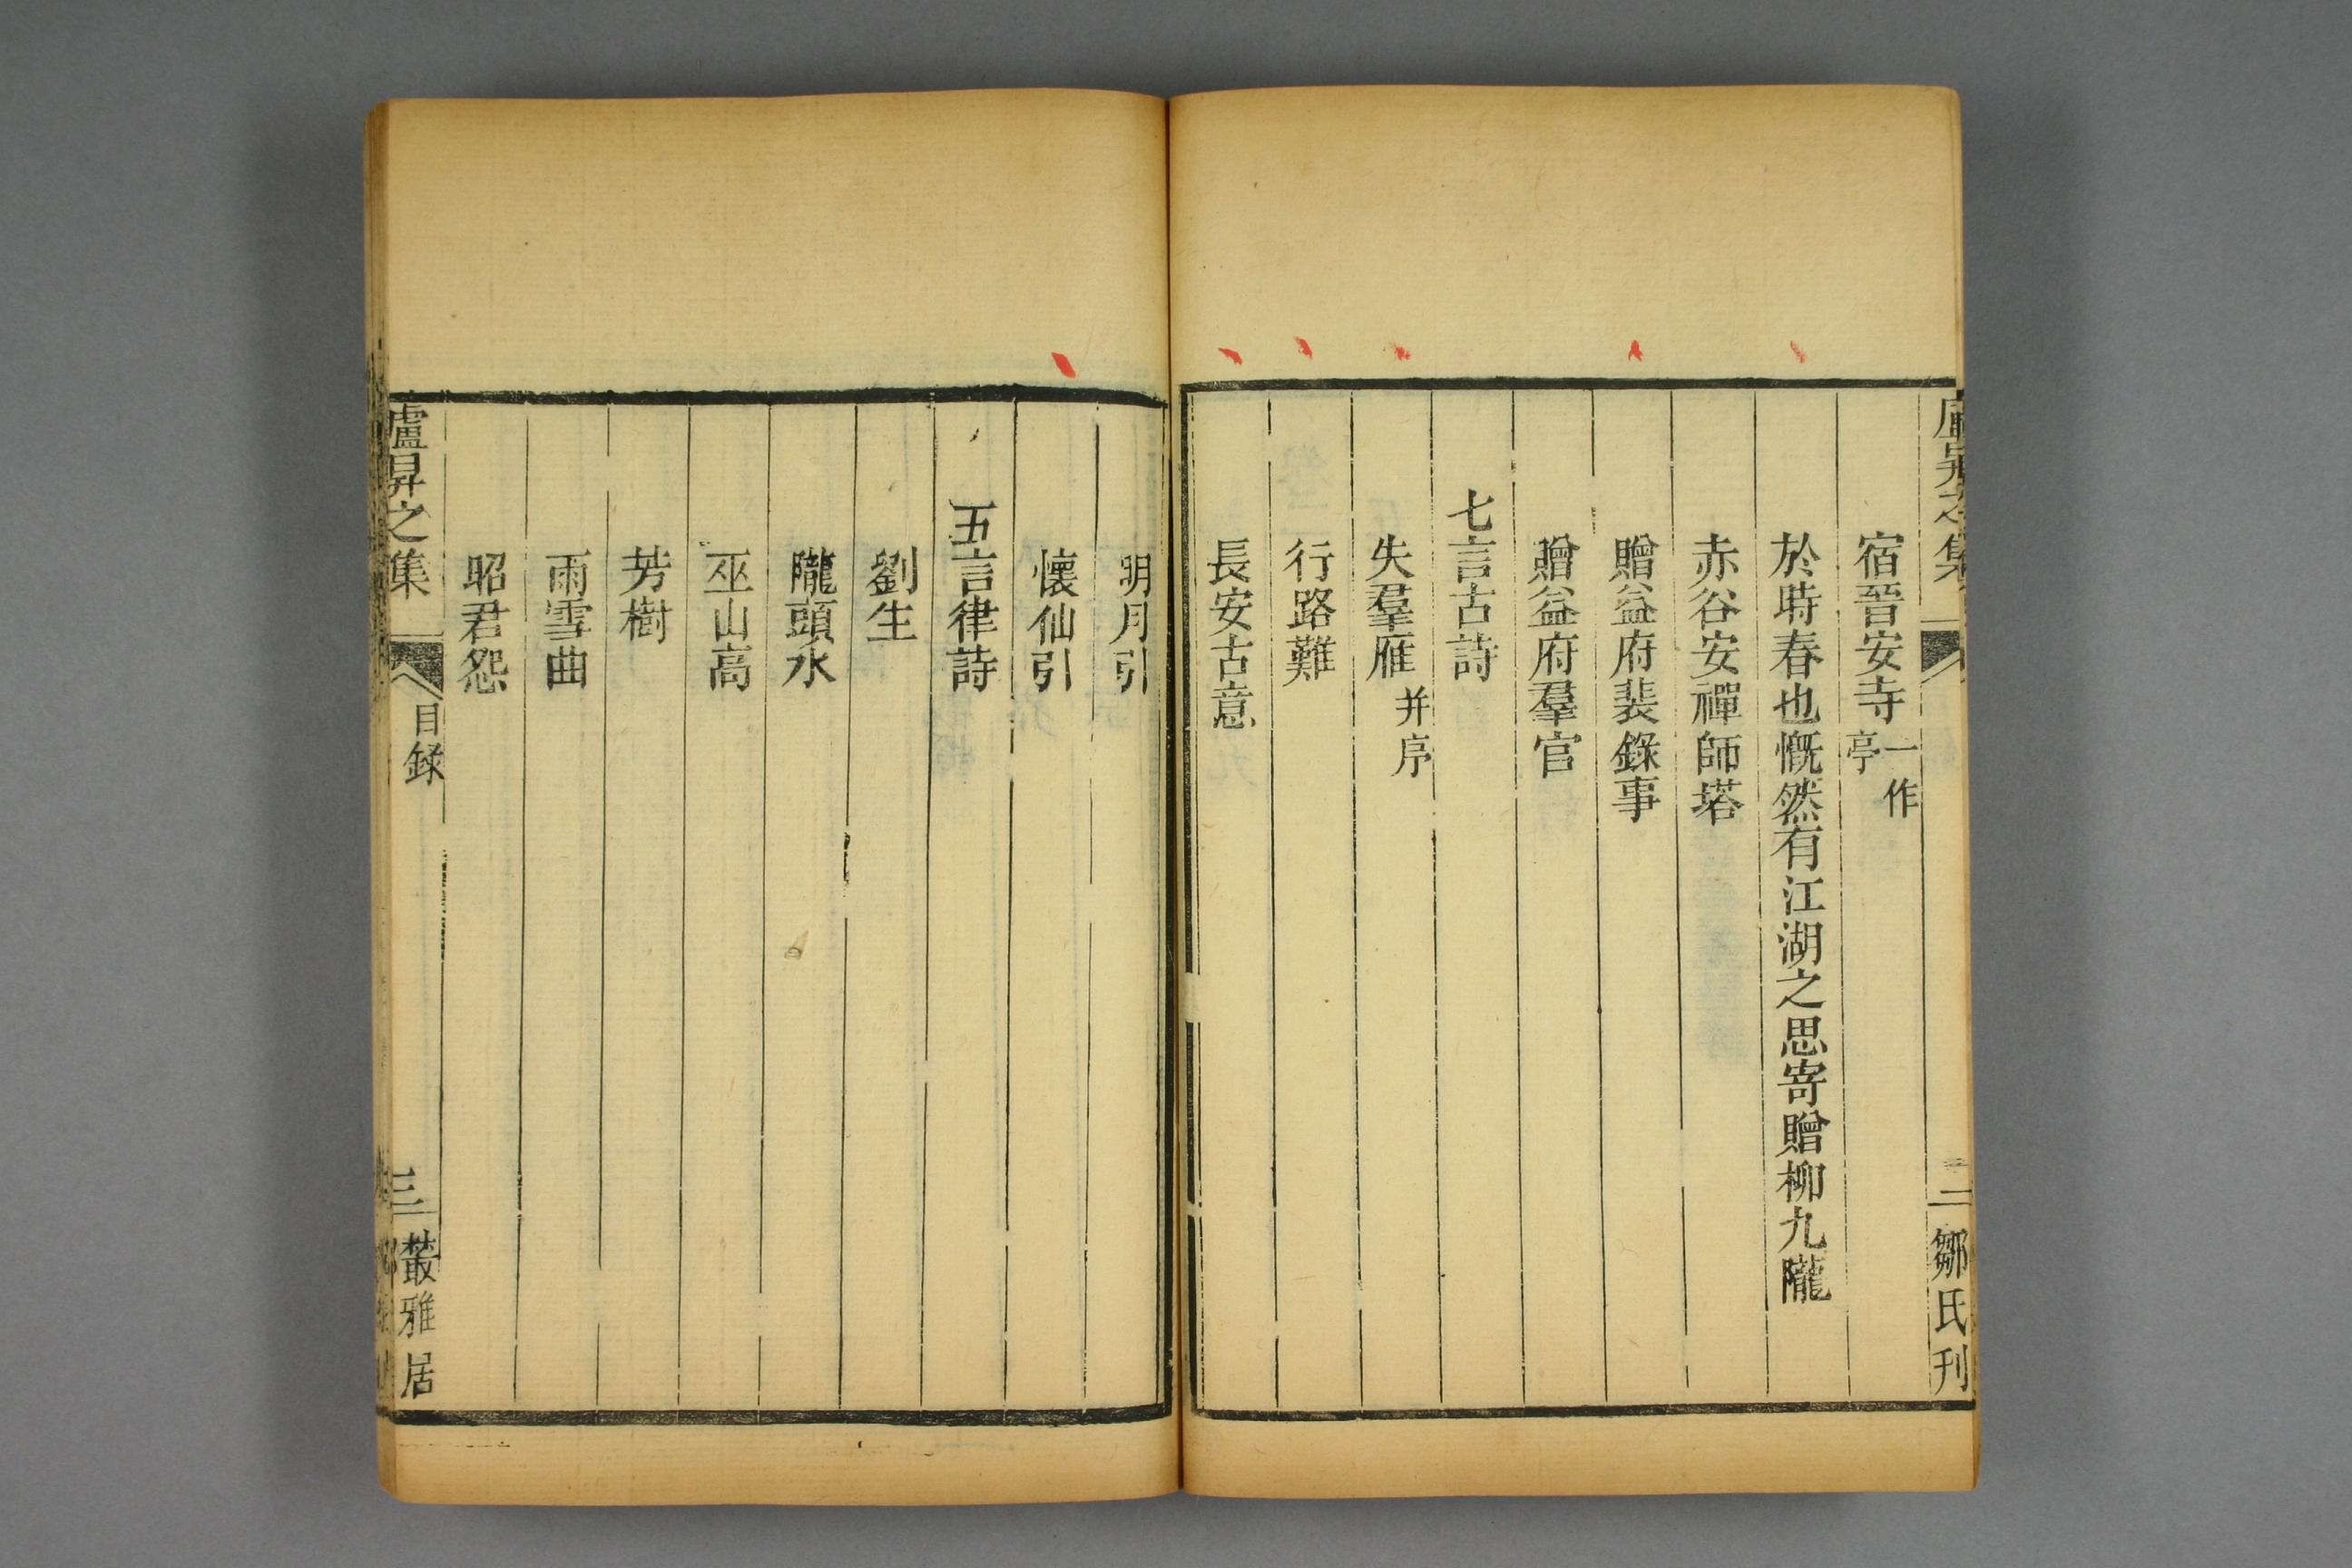 宿晉安寺一作亭
於時春也慨然有江湖之思寄贈柳九隴
赤谷安禪師塔
贈益府裴錄事
贈益府羣官
七言古詩
失羣雁并序
行路難
長安古意
二
鄒氏刊
明月引
懷仙引
五言律詩
劉生
隴頭水
巫山高
芳樹
雨雪曲
昭君怨
盧昇之集
目錄
三
叢雅居